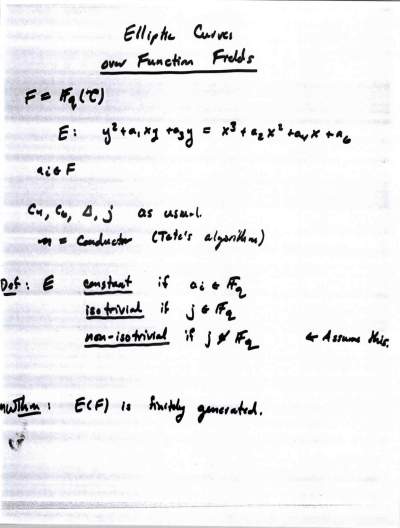 Elliptic Curves
over Function Fields
F = 𝔽_q(C)
E: y² + a₁xy + a₃y = x³ + a₂x² + a₄x + a₆
aᵢ ∈ F
C₄, C₆, Δ, j as usual.
𝔫 = Conductor (Tate's algorithm)
Def: E constant if aᵢ ∈ 𝔽_q
isotrivial if j ∈ 𝔽_q
non-isotrivial if j ∉ 𝔽_q ← Assume this.
MWThm: E(F) is finitely generated.